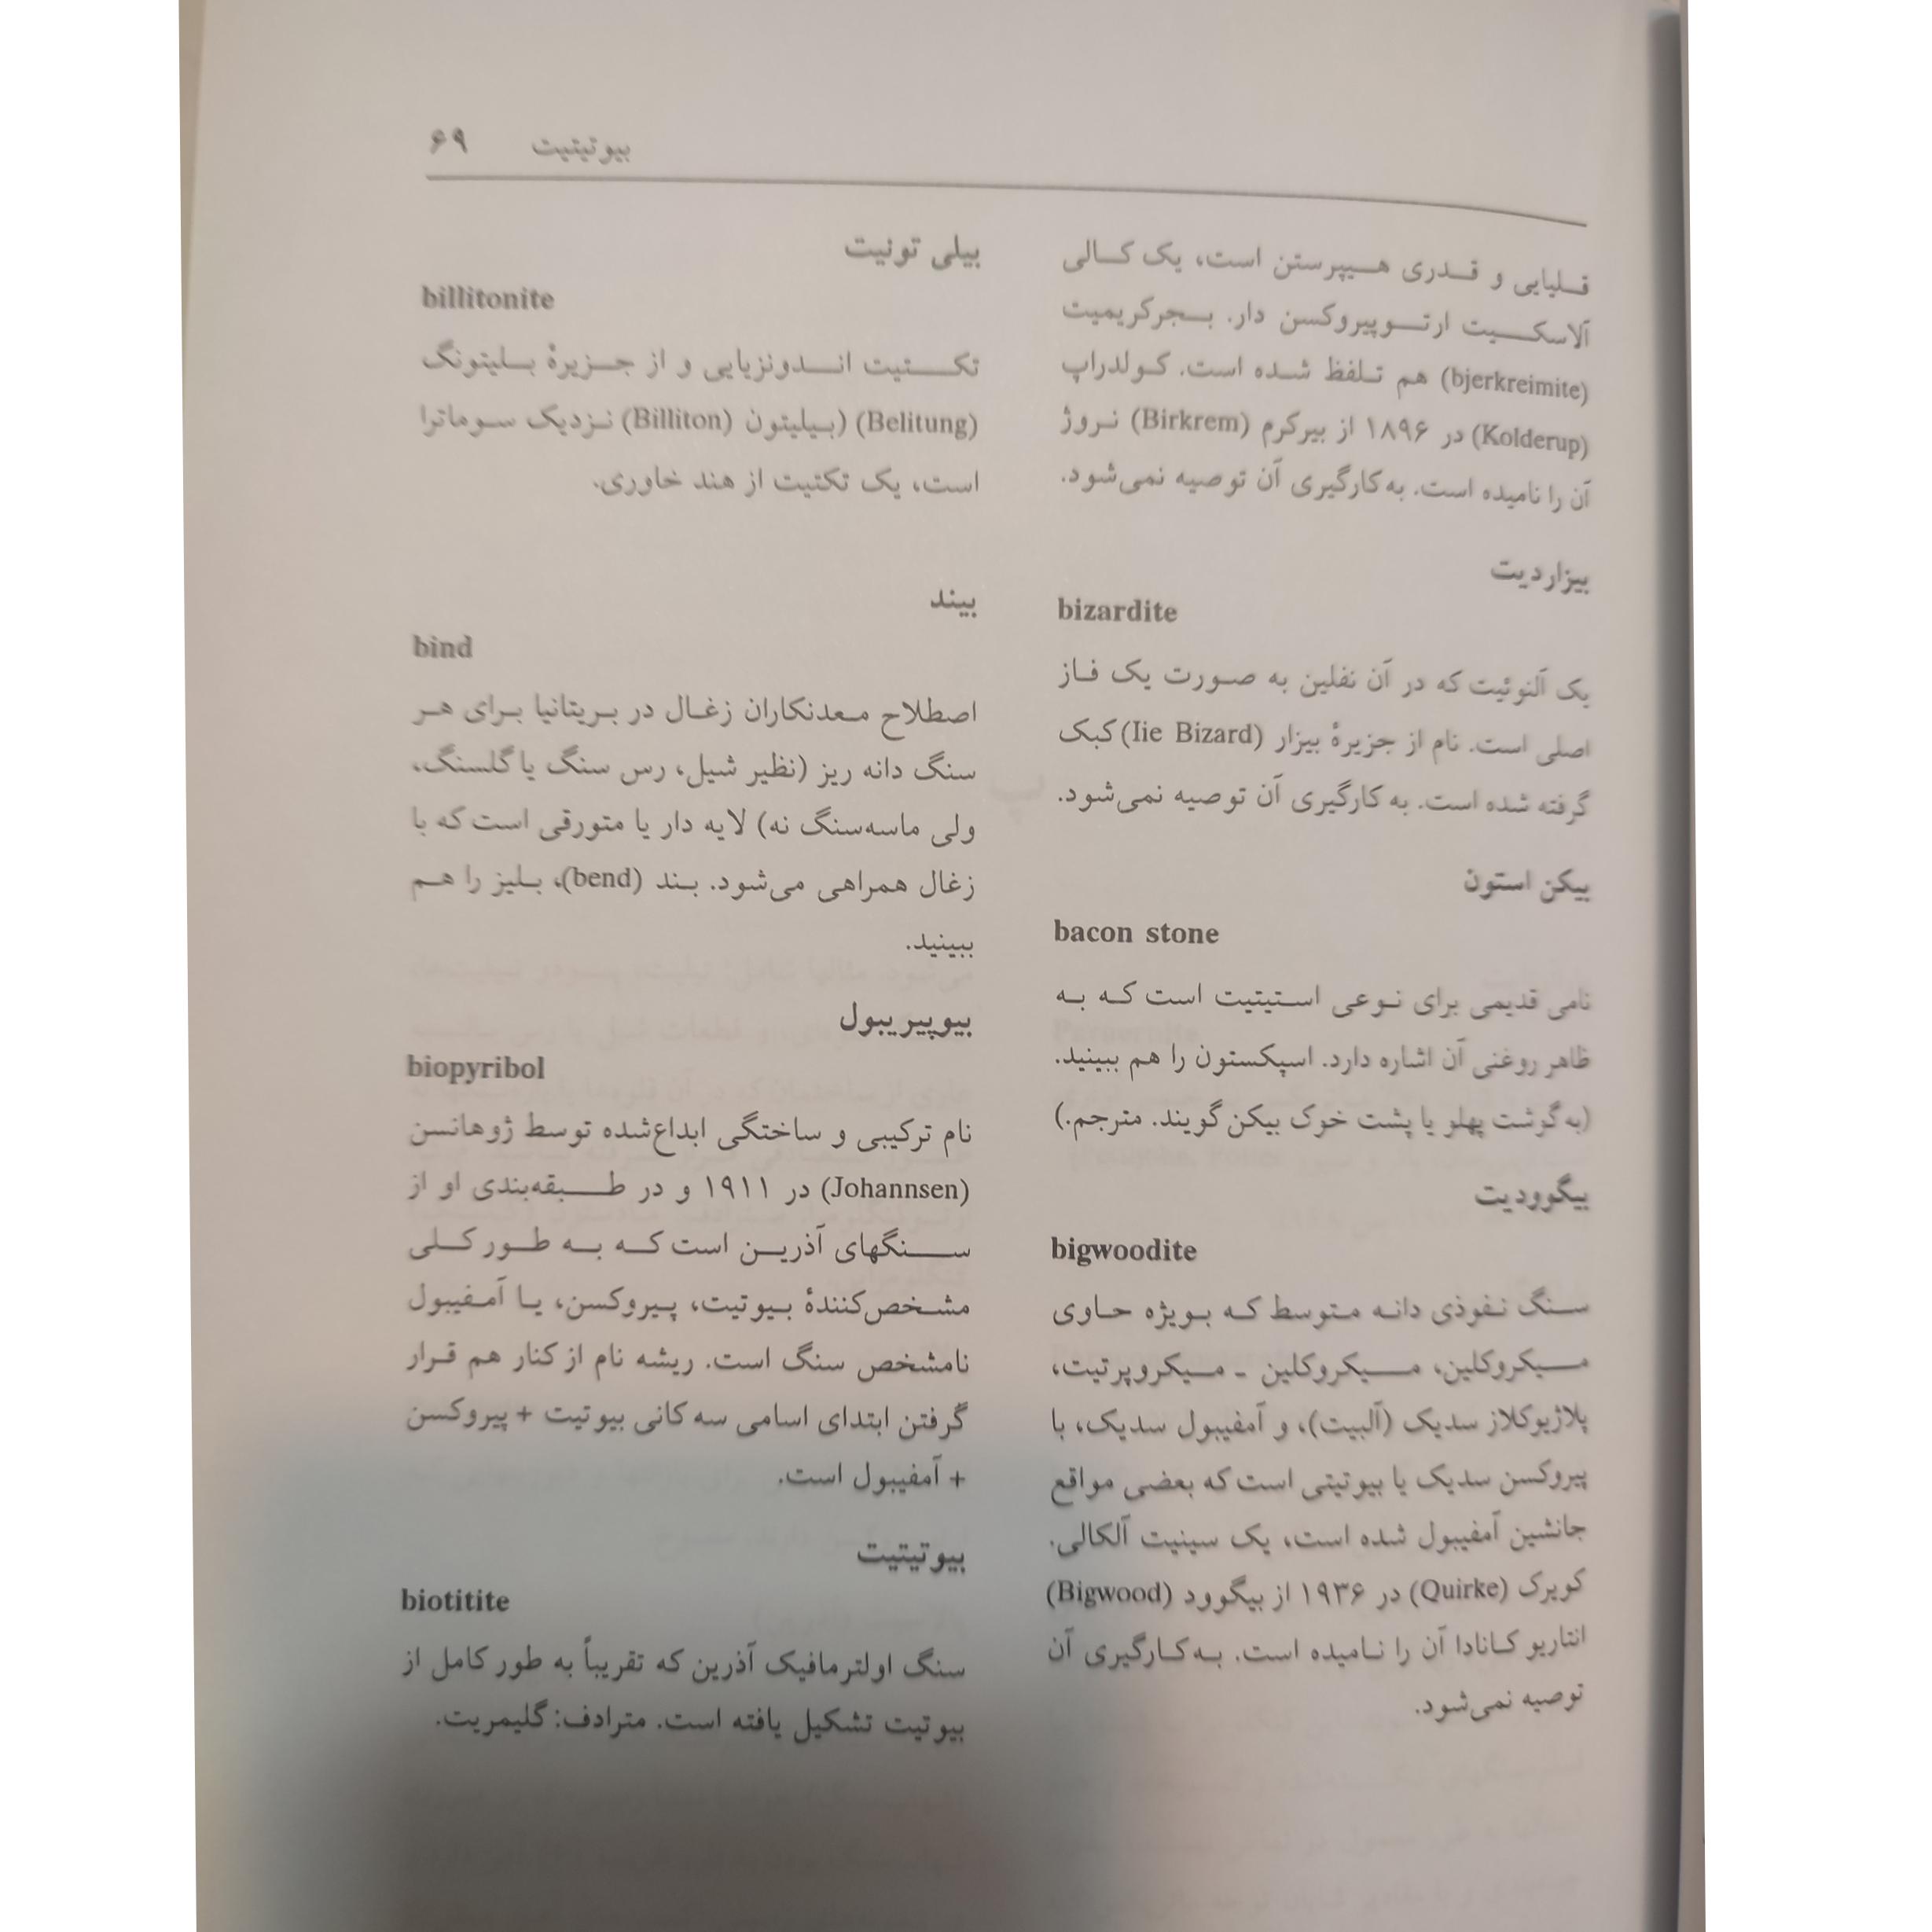 بیوتیتیت ۶۹
قلیایی و قدری هیپرستن است، یک کالی
آلاسکیت ارتوپیروکسن دار. بجرکریمیت
(bjerkreimite) هم تلفظ شده است. کولدراپ
(Kolderup) در ۱۸۹۶ از بیرکرم (Birkrem) نروژ
آن را نامیده است. به‌کارگیری آن توصیه نمی‌شود.
بیزاردیت
bizardite
یک آلنوئیت که در آن نفلین به صورت یک فاز
اصلی است. نام از جزیرهٔ بیزار (Iie Bizard) کبک
گرفته شده است. به کارگیری آن توصیه نمی‌شود.
بیکن استون
bacon stone
نامی قدیمی برای نوعی استیتیت است که به
ظاهر روغنی آن اشاره دارد. اسپکستون را هم ببینید.
(به گوشت پهلو یا پشت خوک بیکن گویند. مترجم.)
بیگوودیت
bigwoodite
سنگ نفوذی دانه متوسط که بویژه حاوی
میکروکلین، میکروکلین ـ میکروپرتیت،
پلاژیوکلاز سدیک (آلبیت)، و آمفیبول سدیک، با
پیروکسن سدیک یا بیوتیتی است که بعضی مواقع
جانشین آمفیبول شده است، یک سینیت آلکالی.
کویرک (Quirke) در ۱۹۳۶ از بیگوود (Bigwood)
انتاریو کانادا آن را نامیده است. به‌کارگیری آن
توصیه نمی‌شود.
بیلی تونیت
billitonite
تکتیت اندونزیایی و از جزیرهٔ بلیتونگ
(Belitung) (بیلیتون (Billiton) نزدیک سوماترا
است، یک تکتیت از هند خاوری.
بیند
bind
اصطلاح معدنکاران زغال در بریتانیا برای هر
سنگ دانه ریز (نظیر شیل، رس سنگ یا گلسنگ،
ولی ماسه‌سنگ نه) لایه دار یا متورقی است که با
زغال همراهی می‌شود. بند (bend)، بلیز را هم
ببینید.
بیوپیریبول
biopyribol
نام ترکیبی و ساختگی ابداع‌شده توسط ژوهانسن
(Johannsen) در ۱۹۱۱ و در طبقه‌بندی او از
سنگهای آذرین است که به طور کلی
مشخص‌کنندهٔ بیوتیت، پیروکسن، یا آمفیبول
نامشخص سنگ است. ریشه نام از کنار هم قرار
گرفتن ابتدای اسامی سه کانی بیوتیت + پیروکسن
+ آمفیبول است.
بیوتیتیت
biotitite
سنگ اولترمافیک آذرین که تقریباً به طور کامل از
بیوتیت تشکیل یافته است. مترادف: گلیمریت.